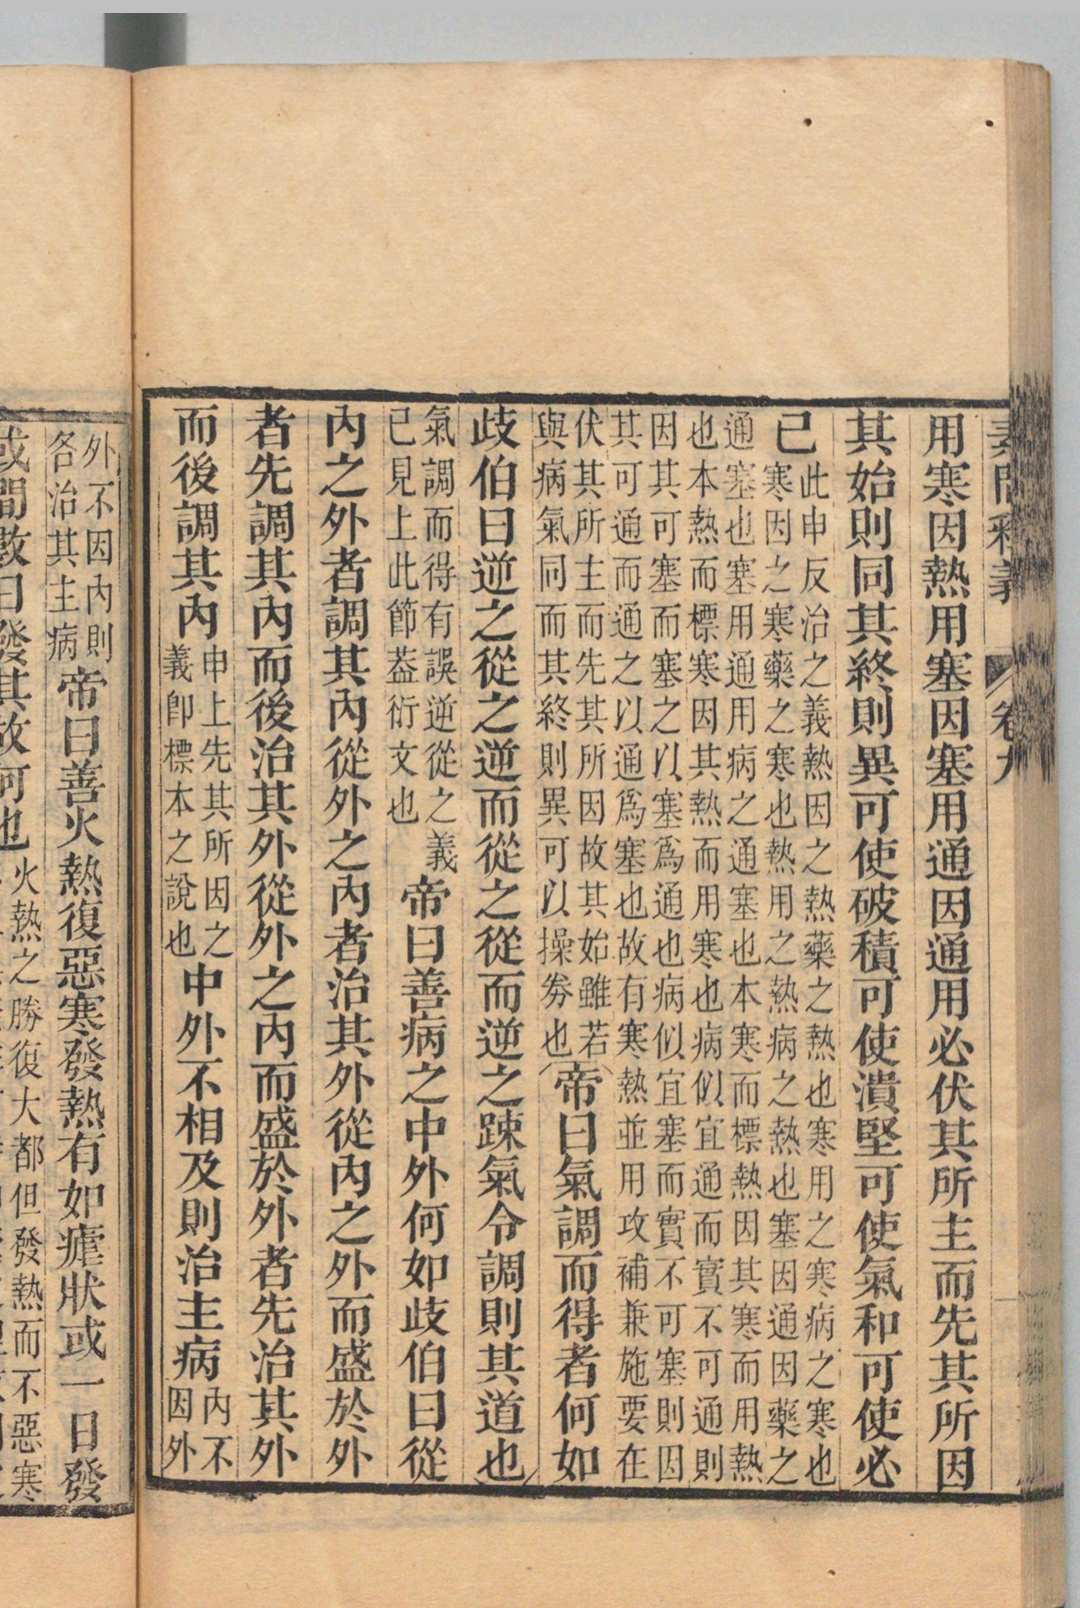 素問釋義 卷九
用寒因熱用塞因塞用通因通用必伏其所主而先其所因
其始則同其終則異可使破積可使潰堅可使氣和可使必
已
此申反治之義熱因之熱藥之熱也寒用之寒病之寒也
寒因之寒藥之寒也熱用之熱病之熱也塞因通因藥之
通塞也塞用通用病之通塞也本寒而標熱因其寒而用熱
也本熱而標寒因其熱而用寒也病似宜通而實不可通則
因其可塞而塞之以塞爲通也病似宜塞而實不可塞則因
其可通而通之以通爲塞也故有寒熱並用攻補兼施要在
伏其所主而先其所因故其始雖若
與病氣同而其終則異可以操劵也
帝曰氣調而得者何如
歧伯曰逆之從之逆而從之從而逆之踈氣令調則其道也
氣調而得有誤逆從之義
已見上此節葢衍文也
帝曰善病之中外何如歧伯曰從
內之外者調其內從外之內者治其外從內之外而盛於外
者先調其內而後治其外從外之內而盛於外者先治其外
而後調其內
申上先其所因之
義卽標本之說也
中外不相及則治主病
內不
因外
外不因內則
各治其主病
帝曰善火熱復惡寒發熱有如瘧狀或一日發
或間數日發其故何也
火熱之勝復大都但發熱而不惡寒